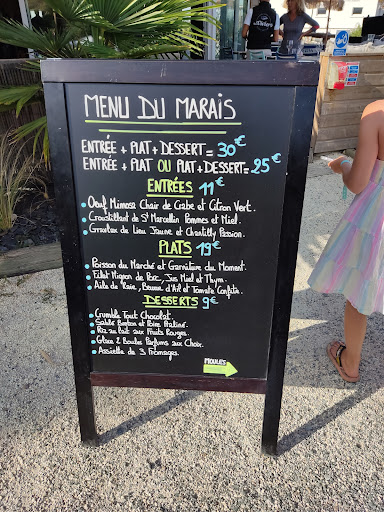 MENU DU MARAIS
ENTRÉE + PLAT + DESSERT = 30€
ENTRÉE + PLAT OU PLAT + DESSERT = 25€
ENTRÉES 11€
• Oeuf Mimosa Chair de Crabe et Citron Vert.
• Croustillant de St Marcellin Pommes et Miel.
• Gravlax de Lieu Jaune et Chantilly Passion.
PLATS 19€
• Poisson du Marché et Garniture du Moment.
• Filet Mignon de Porc, Jus Miel et Thym.
• Aile de Raie, Beurre d'Ail et Tomate Confite.
DESSERTS 9€
• Crumble Tout Chocolat.
• Sablé Breton et Poire Praliné.
• Riz au lait aux Fruits Rouges.
• Glace 2 Boules Parfums aux Choix.
• Assiette de 3 Fromages.
MOULES